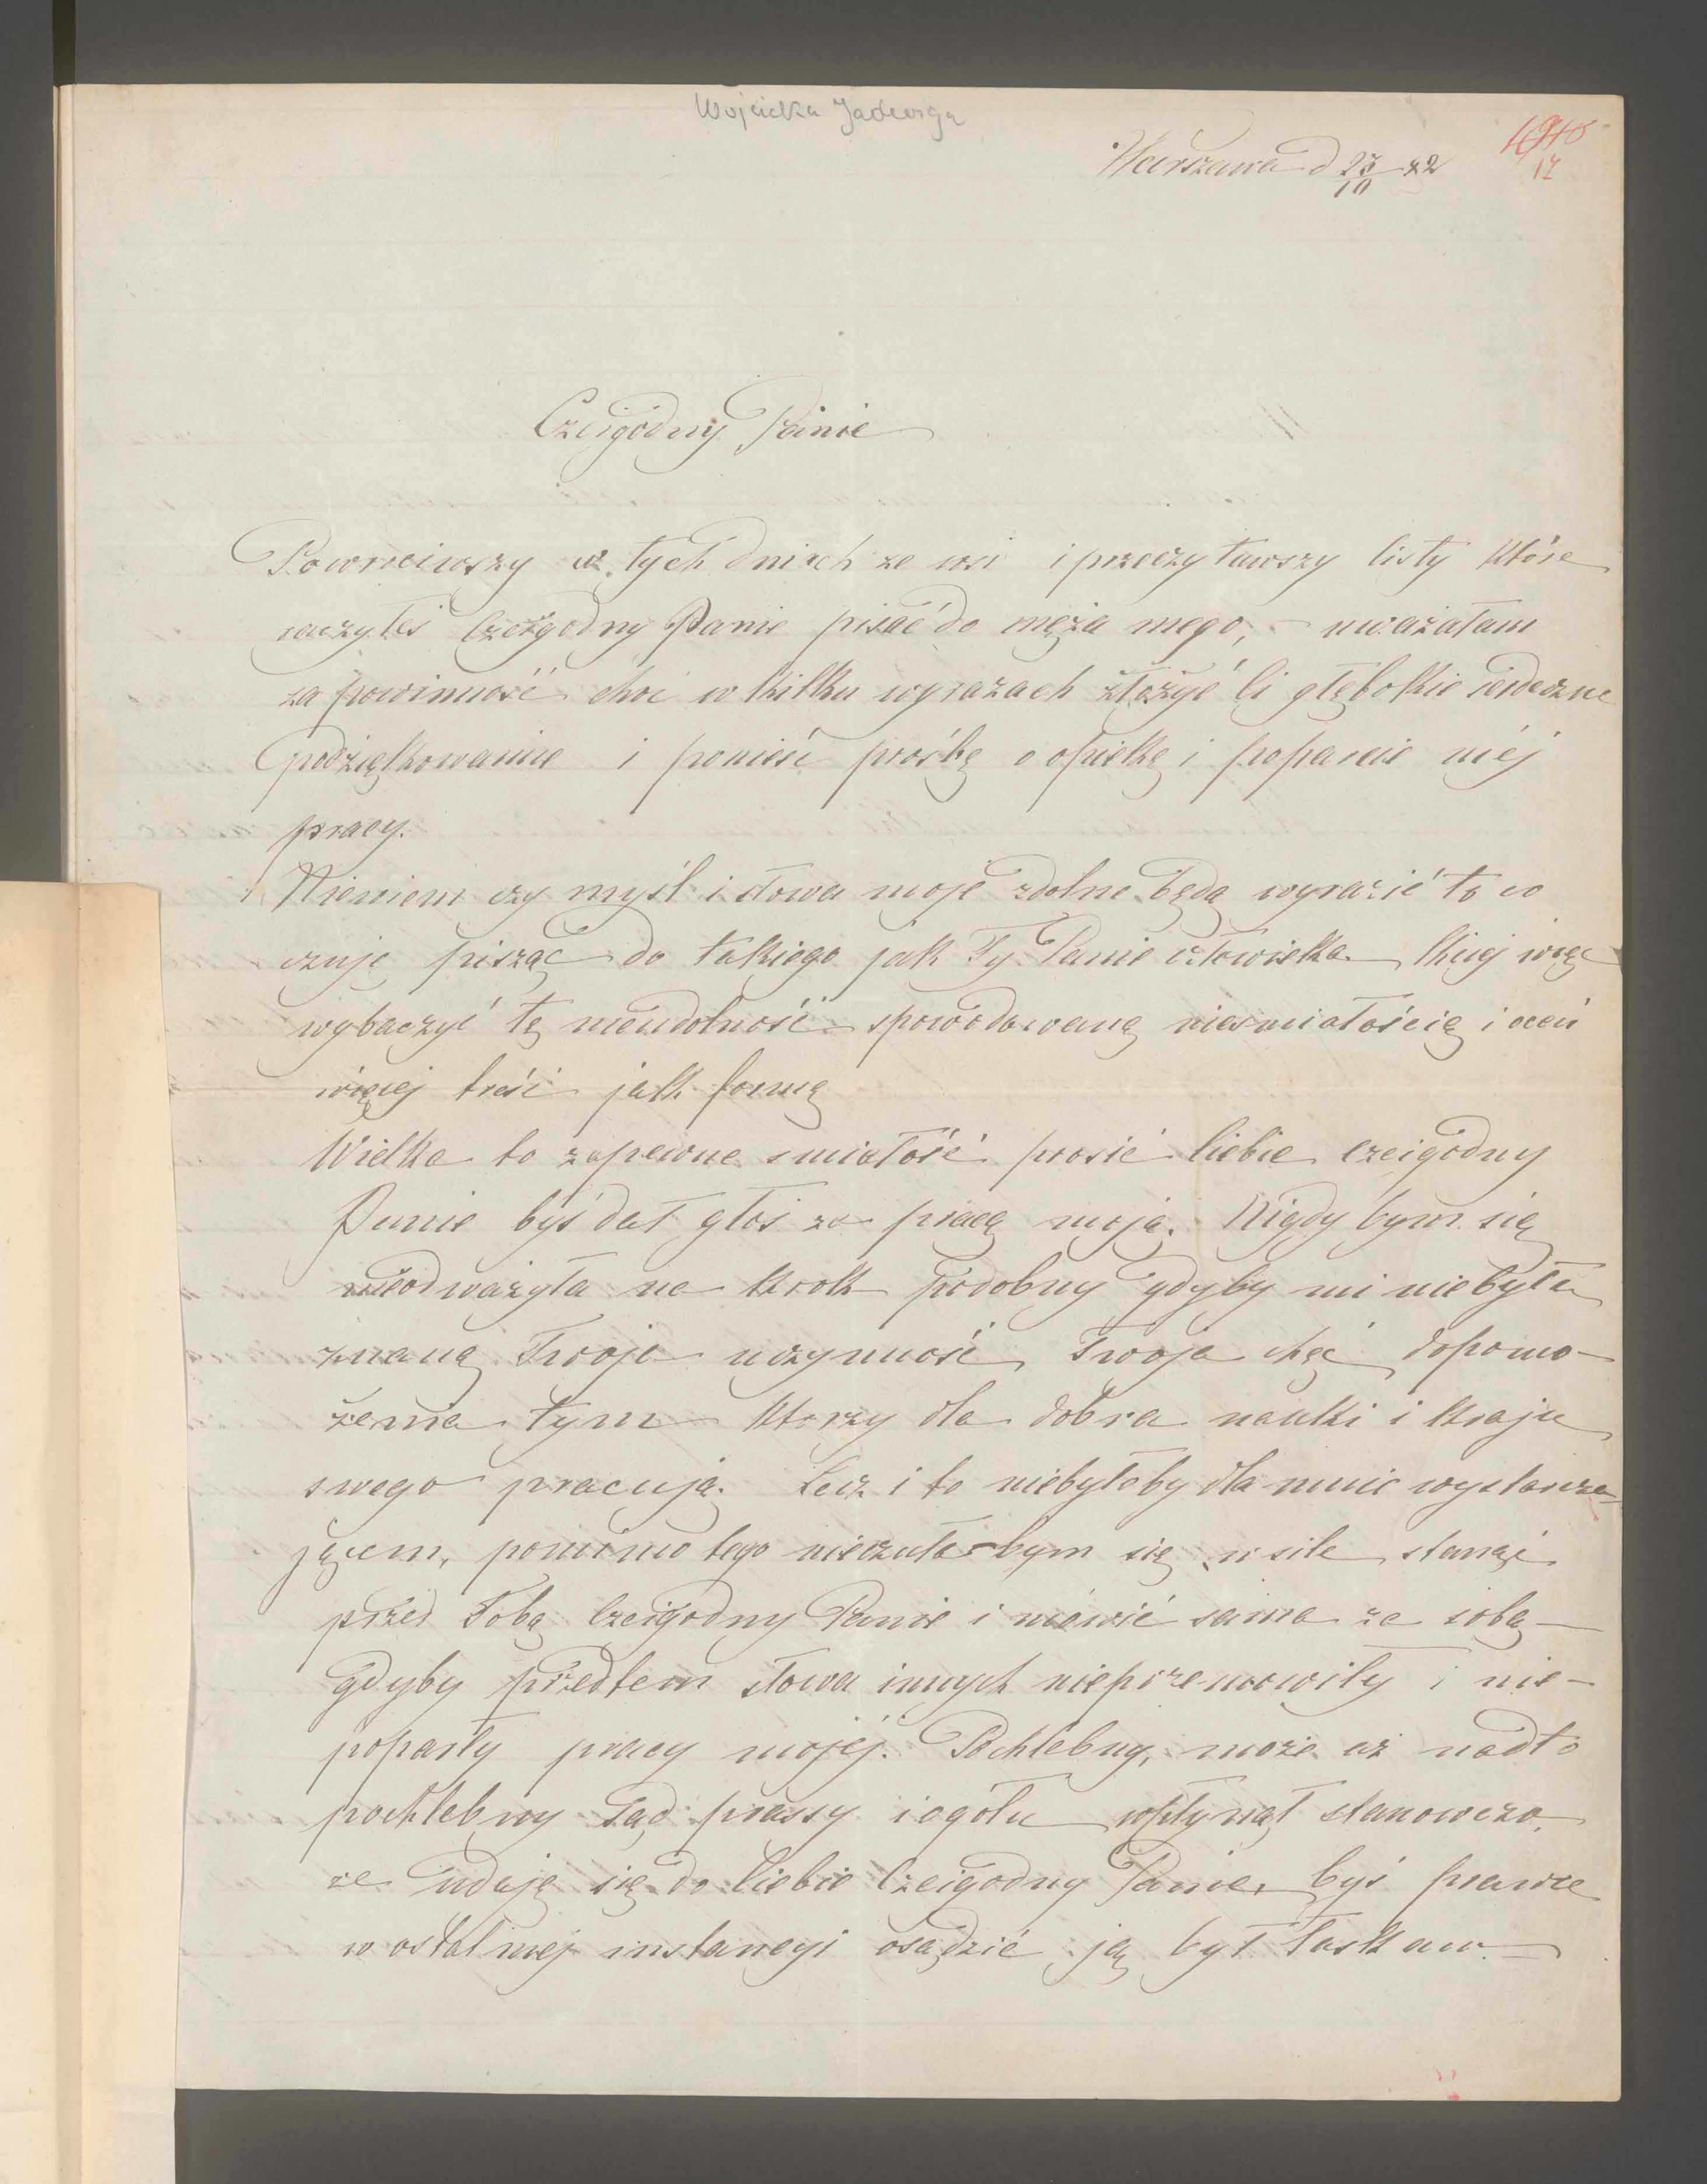 Wojcicka Jadwiga
Warszawa d 23/10 82
17
Czcigodny Panie
Powrociwszy w tych dniach ze wsi i przeczytawszy listy które
raczyłeś Czcigodny Panie pisać do męża mego, – uważałam
za powinność choć w kilku wyrazach złożyć Ci głębokie serdeczne
podziękowanie i ponieść prośbę o opiekę i poparcie méj
pracy.
Niewiem czy myśl i słowa moje zdolne będą wyrazić to co
czuję pisząc do takiego jak Ty Panie człowieka. Chciej więc
wybaczyć tę nieudolność spowodowaną niesmiałością i oceń
więcej treść jak formę
Wielka to zapewne smiałość prosić Ciebie czcigodny
Panie byś dał głos za pracą moją. Nigdy bym się
nieodważyła na krok podobny gdyby mi niebyła
znaną Twoja uczynność, Twoja chęć dopomo-
żenia tym którzy dla dobra nauki i kraju
swego pracują. Lecz i to niebyłoby dla mnie wystarcza-
jącem, pomimo tego nieczuła bym się w sile stanąć
przed Tobą Czcigodny Panie i mówić sama za sobą –
gdyby przedtem słowa innych nieprzemowiły i nie-
poparły pracy mojéj. Pochlebny, może aż nadto
pochlebny sąd prassy i ogółu wpłynął stanowczo,
że udaję się do Ciebie Czcigodny Panie, byś prawie
w ostatniej instancyi osądzić ją był łaskaw. –